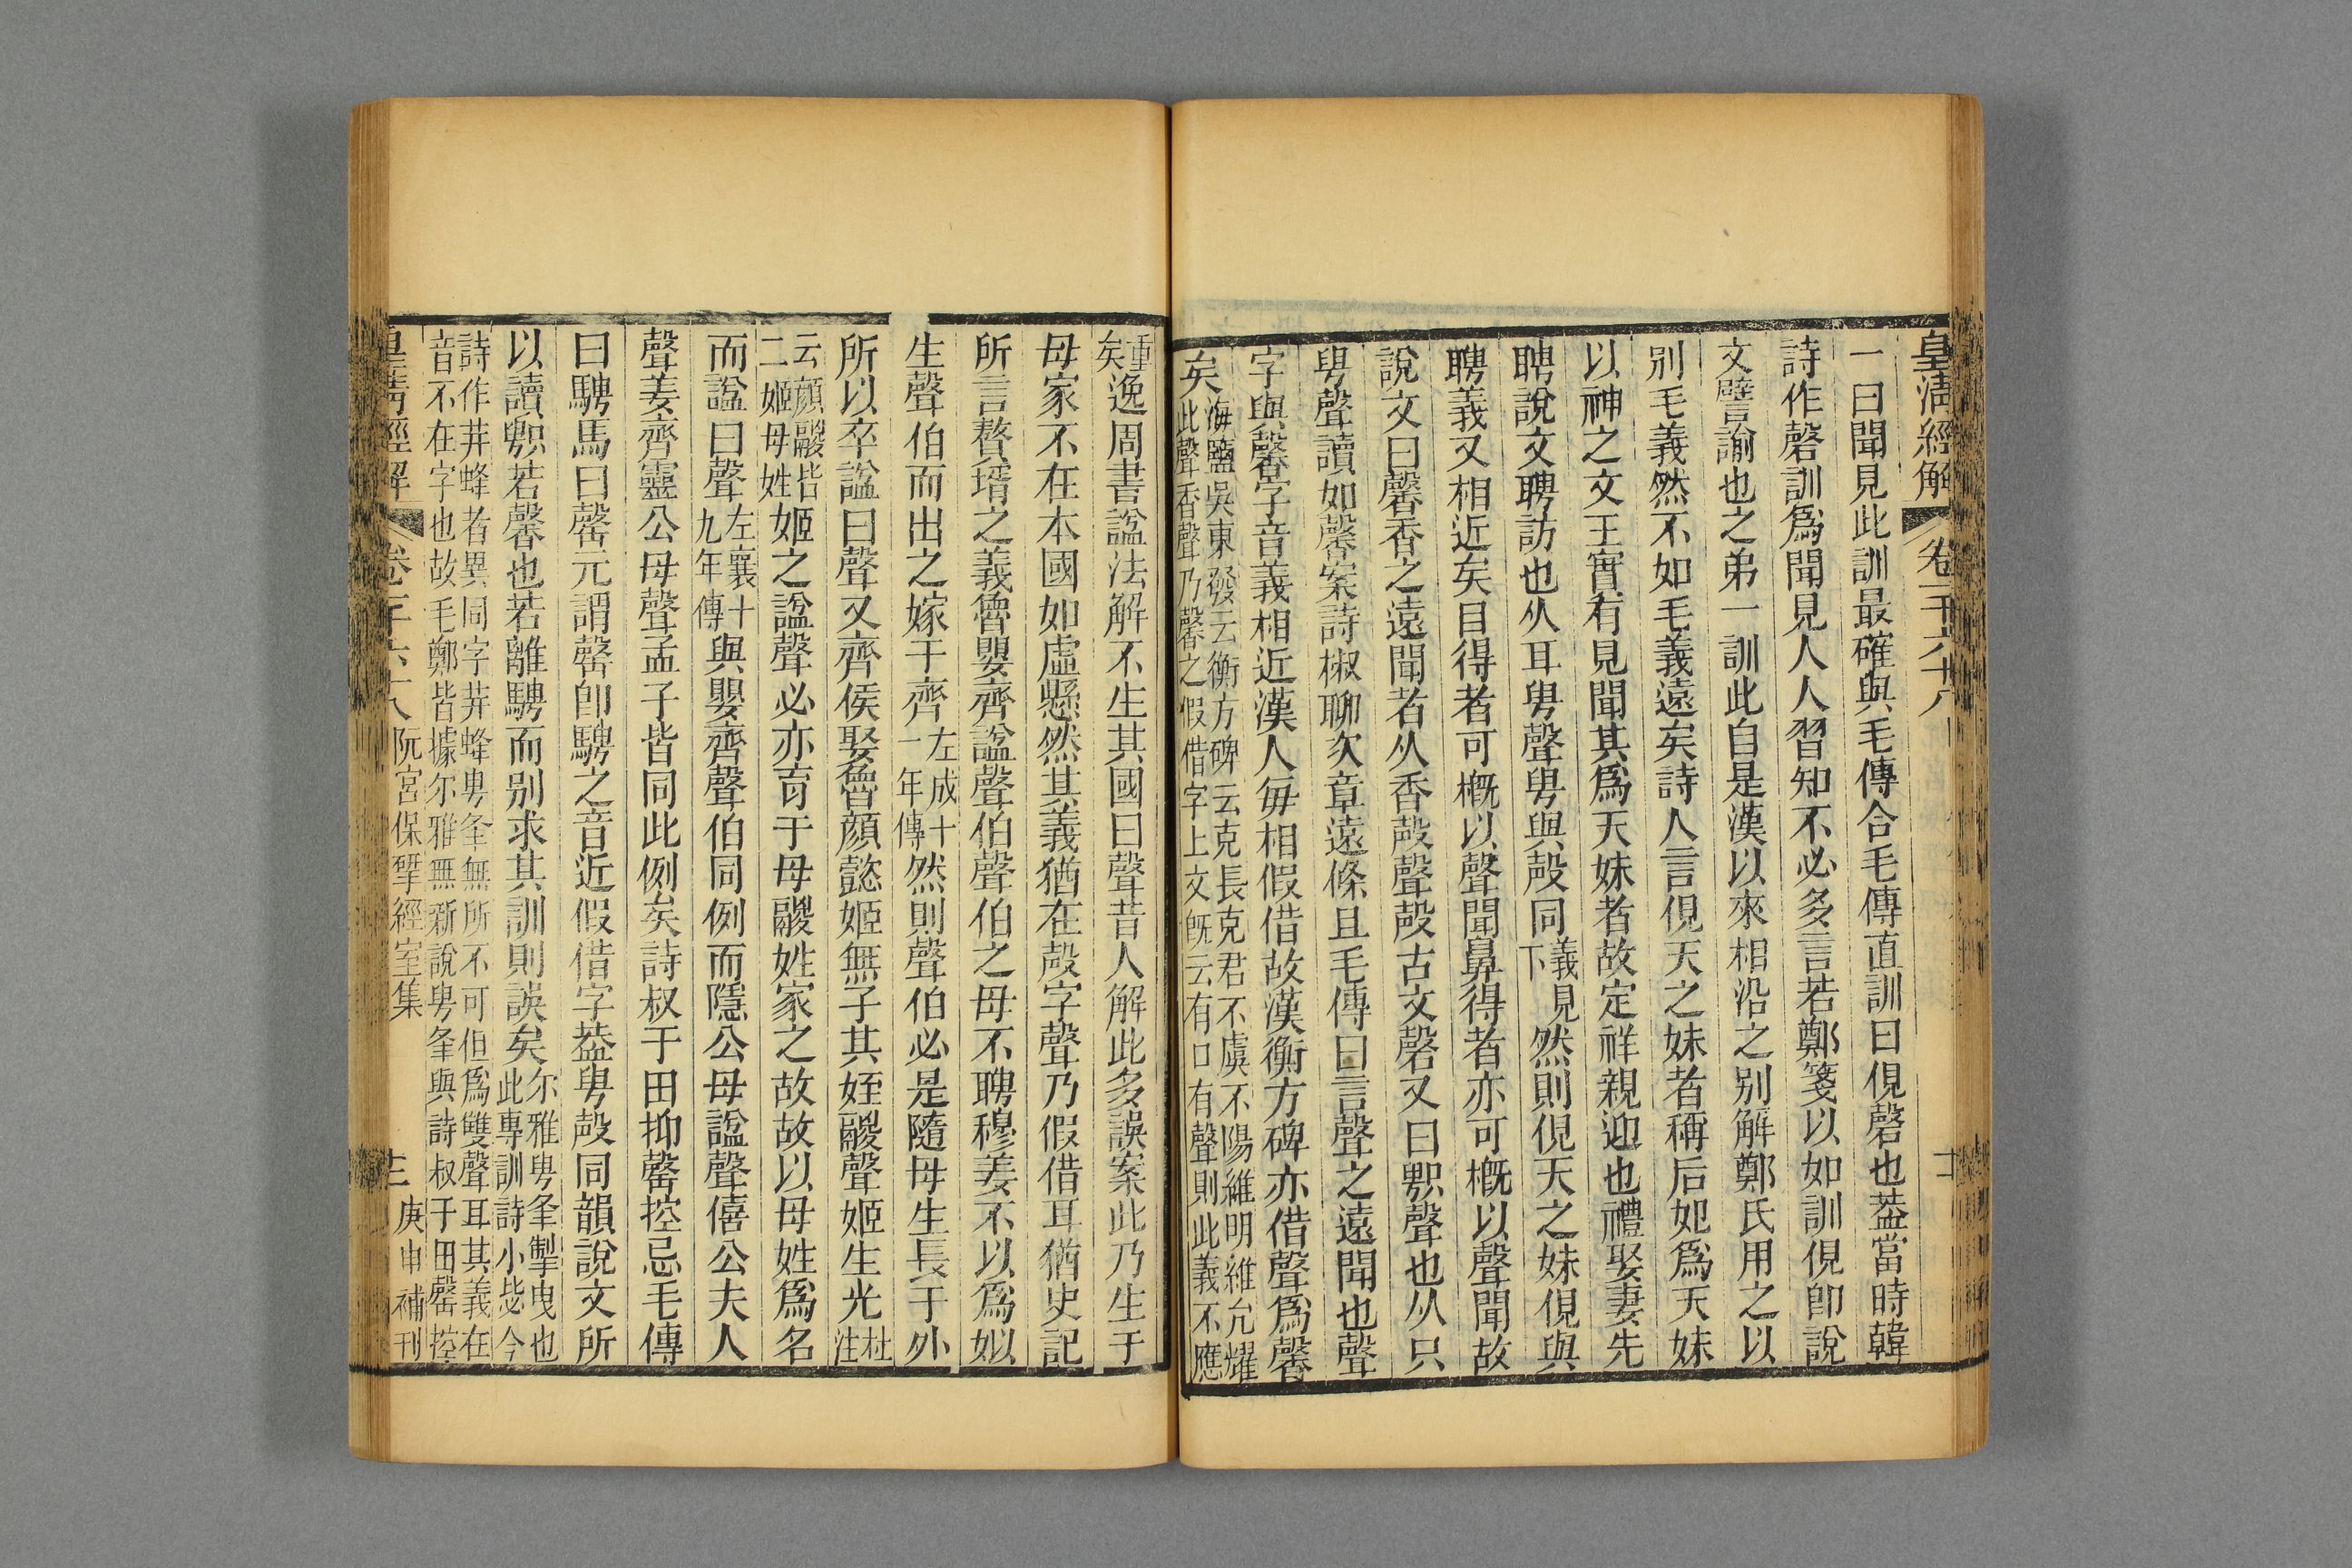 皇清經解 卷一千六十八
一曰聞見此訓最確與毛傳合毛傳直訓曰俔磬也葢當時韓
詩作磬訓爲聞見人人習知不必多言若鄭箋以如訓俔卽說
文譬諭也之弟一訓此自是漢以來相沿之别解鄭氏用之以
别毛義然不如毛義遠矣詩人言俔天之妹者稱后妃爲天妹
以神之文王實有見聞其爲天妹者故定祥親迎也禮娶妻先
聘說文聘訪也从耳甹聲甹與殸同義見下然則俔天之妹俔與
聘義又相近矣目得者可概以聲聞鼻得者亦可概以聲聞故
說文曰馨香之遠聞者从香殸聲殸古文磬又曰𠷓聲也从只
甹聲讀如馨案詩椒聊次章遠條且毛傳曰言聲之遠聞也聲
字與馨字音義相近漢人每相假借故漢衡方碑亦借聲爲馨
矣海鹽吳東發云衡方碑云克長克君不虞不陽維明維允燿此聲香聲乃馨之假借字上文旣云有口有聲則此義不應
重矣逸周書諡法解不生其國曰聲昔人解此多誤案此乃生于
母家不在本國如虛懸然其義猶在殸字聲乃假借耳猶史記
所言贅壻之義魯嬰齊諡聲伯聲伯之母不聘穆姜不以爲姒
生聲伯而出之嫁于齊左成十一年傳然則聲伯必是隨母生長于外
所以卒諡曰聲又齊侯娶魯顔懿姬無子其姪鬷聲姬生光杜注
云顔鬷皆二姬母姓姬之諡聲必亦育于母鬷姓家之故故以母姓爲名
而諡曰聲左襄十九年傳與嬰齊聲伯同例而隱公母諡聲僖公夫人
聲姜齊靈公母聲孟子皆同此例矣詩叔于田抑罄控忌毛傳
曰騁馬曰罄元謂罄卽騁之音近假借字葢甹殸同韻說文所
以讀𠷓若馨也若離騁而别求其訓則誤矣尔雅甹夆掣曳也此專訓詩小毖今
詩作荓蜂者異同字荓蜂甹夆無所不可但爲雙聲耳其義在音不在字也故毛鄭皆據尔雅無新說甹夆與詩叔于田罄控
皇清經解 卷一千六十八 阮宮保揅經室集 十二 庚申補刊